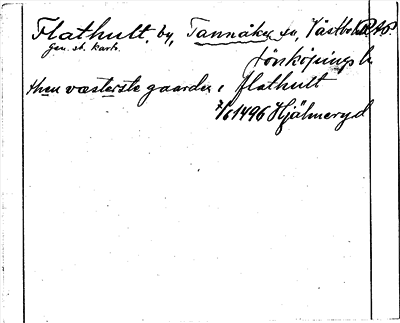 Flathult, by, Tannåker sn, Västbo
Gen. st. kart.
Jönköpings l.
then væsterste gaarden i flathult
7/6 1496 Hjälmeryd